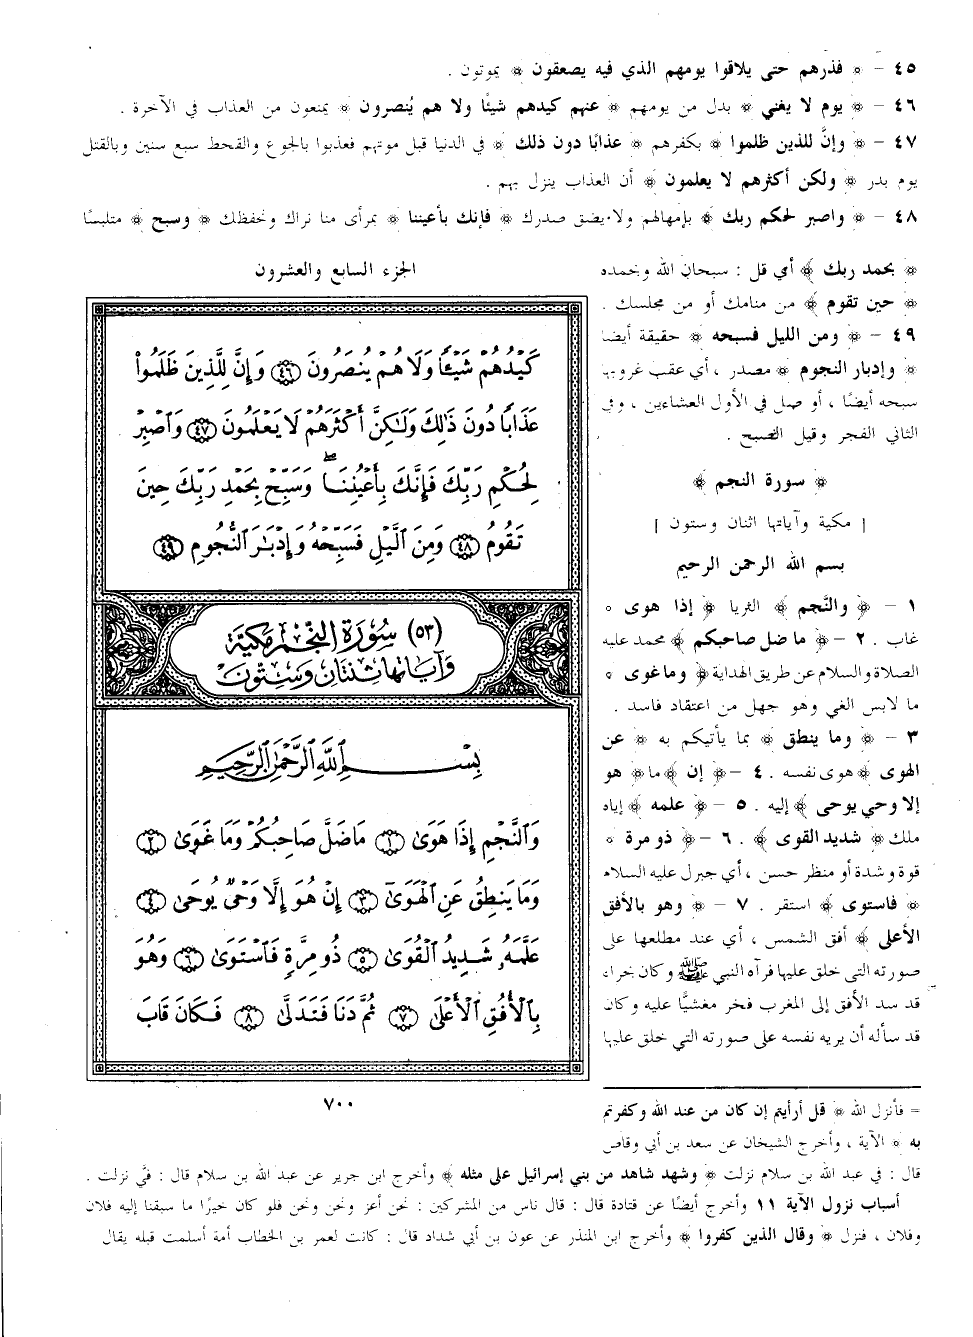 ٤٥ – ﴿ فذرهم حتى يلاقوا يومهم الذي فيه يصعقون ﴾ يموتون .
٤٦ – ﴿ يوم لا يغني ﴾ بدل من يومهم ﴿ عنهم كيدهم شيئًا ولا هم يُنصرون ﴾ يمنعون من العذاب في الآخرة .
٤٧ – ﴿ وإنَّ للذين ظلموا ﴾ بكفرهم ﴿ عذابًا دون ذلك ﴾ في الدنيا قبل موتهم فعذبوا بالجوع والقحط سبع سنين وبالقتل
يوم بدر ﴿ ولكن أكثرهم لا يعلمون ﴾ أن العذاب ينزل بهم .
٤٨ – ﴿ واصبر لحكم ربك ﴾ بإمهالهم ولا يضق صدرك ﴿ فإنك بأعيننا ﴾ بمرأى منا نراك ونحفظك ﴿ وسبح ﴾ متلبسًا
﴿ بحمد ربك ﴾ أي قل : سبحان الله وبحمده
﴿ حين تقوم ﴾ من منامك أو من مجلسك .
٤٩ – ﴿ ومن الليل فسبحه ﴾ حقيقة أيضا
﴿ وإدبار النجوم ﴾ مصدر ، أي عقب غروبها
سبحه أيضًا ، أو صل في الأول العشاءين ، وفي
الثاني الفجر وقيل الصبح .
﴿ سورة النجم ﴾
[ مكية وآياتها اثنان وستون ]
بسم الله الرحمن الرحيم
١ – ﴿ والنَّجم ﴾ الثريا ﴿ إذا هوى ﴾
غاب . ٢ – ﴿ ما ضل صاحبكم ﴾ محمد عليه
الصلاة والسلام عن طريق الهداية ﴿ وما غوى ﴾
ما لابس الغي وهو جهل من اعتقاد فاسد .
٣ – ﴿ وما ينطق ﴾ بما يأتيكم به ﴿ عن
الهوى ﴾ هوى نفسه . ٤ – ﴿ إن ﴾ ما ﴿ هو
إلا وحي يوحى ﴾ إليه . ٥ – ﴿ علمه ﴾ إياه
ملك ﴿ شديد القوى ﴾ . ٦ – ﴿ ذو مرة ﴾
قوة وشدة أو منظر حسن ، أي جبرل عليه السلام
﴿ فاستوى ﴾ استقر . ٧ – ﴿ وهو بالأفق
الأعلى ﴾ أفق الشمس ، أي عند مطلعها على
صورته التي خلق عليها فرآه النبي ﷺ وكان بحراء
قد سد الأفق إلى المغرب فخر مغشيًّا عليه وكان
قد سأله أن يريه نفسه على صورته التي خلق عليها
الجزء السابع والعشرون
كَيْدُهُمْ شَيْـًٔا وَلَا هُمْ يُنصَرُونَ ﴿٤٦﴾ وَإِنَّ لِلَّذِينَ ظَلَمُوا۟
عَذَابًا دُونَ ذَٰلِكَ وَلَـٰكِنَّ أَكْثَرَهُمْ لَا يَعْلَمُونَ ﴿٤٧﴾ وَٱصْبِرْ
لِحُكْمِ رَبِّكَ فَإِنَّكَ بِأَعْيُنِنَا ۖ وَسَبِّحْ بِحَمْدِ رَبِّكَ حِينَ
تَقُومُ ﴿٤٨﴾ وَمِنَ ٱلَّيْلِ فَسَبِّحْهُ وَإِدْبَـٰرَ ٱلنُّجُومِ ﴿٤٩﴾
(٥٣) سُورَة النَّجْمِ مَكِّيَّة
وَآيَاتُهَا ثِنْتَانِ وَسِتُّونَ
بِسْمِ ٱللَّهِ ٱلرَّحْمَـٰنِ ٱلرَّحِيمِ
وَٱلنَّجْمِ إِذَا هَوَىٰ ﴿١﴾ مَا ضَلَّ صَاحِبُكُمْ وَمَا غَوَىٰ ﴿٢﴾
وَمَا يَنطِقُ عَنِ ٱلْهَوَىٰٓ ﴿٣﴾ إِنْ هُوَ إِلَّا وَحْىٌ يُوحَىٰ ﴿٤﴾
عَلَّمَهُۥ شَدِيدُ ٱلْقُوَىٰ ﴿٥﴾ ذُو مِرَّةٍ فَٱسْتَوَىٰ ﴿٦﴾ وَهُوَ
بِٱلْأُفُقِ ٱلْأَعْلَىٰ ﴿٧﴾ ثُمَّ دَنَا فَتَدَلَّىٰ ﴿٨﴾ فَكَانَ قَابَ
٧٠٠
= فأنزل الله ﴿ قل أرأيتم إن كان من عند الله وكفرتم
به ﴾ الآية ، وأخرج الشيخان عن سعد بن أبي وقاص
قال : في عبد الله بن سلام نزلت ﴿ وشهد شاهد من بني إسرائيل على مثله ﴾ وأخرج ابن جرير عن عبد الله بن سلام قال : فيَّ نزلت .
أسباب نزول الآية ١١ وأخرج أيضًا عن قتادة قال : قال ناس من المشركين : نحن أعز ونحن ونحن فلو كان خيرًا ما سبقنا إليه فلان
وفلان ، فنزل ﴿ وقال الذين كفروا ﴾ وأخرج ابن المنذر عن عون بن أبي شداد قال : كانت لعمر بن الخطاب أمة أسلمت قبله يقال